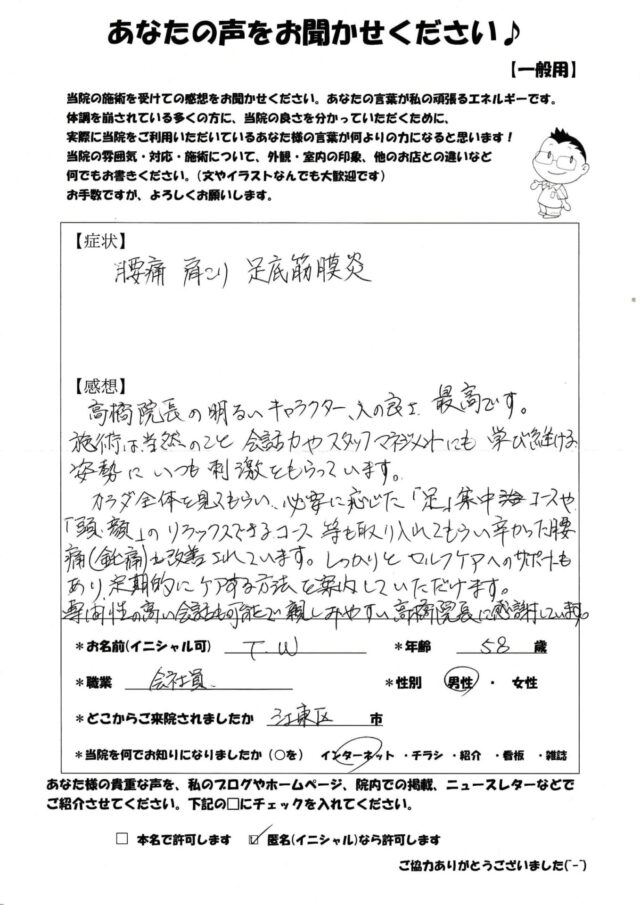 あなたの声をお聞かせください♪
【一般用】
当院の施術を受けての感想をお聞かせください。あなたの言葉が私の頑張るエネルギーです。
体調を崩されている多くの方に、当院の良さを分かっていただくために、
実際に当院をご利用いただいているあなた様の言葉が何よりの力になると思います！
当院の雰囲気・対応・施術について、外観・室内の印象、他のお店との違いなど
何でもお書きください。(文やイラストなんでも大歓迎です)
お手数ですが、よろしくお願いします。
【症状】
腰痛 肩こり 足底筋膜炎
【感想】
高橋院長の明るいキャラクター、人の良さ 最高です。
施術は当然のこと 会話力やスタッフマネジメントにも 学び続ける
姿勢に いつも刺激をもらっています。
カラダ全体を見てもらい、必要に応じた「足」集中コースや
「頭・顔」のリラックスできるコース 等も取り入れてもらい辛かった腰
痛(鈍痛)も改善されています。しっかりと セルフケアへのサポートも
あり、定期的にケアする方法を案内していただけます。
専門性の高い会話も可能で親しみやすい高橋院長に感謝しています。
*お名前(イニシャル可) T.W *年齢 58 歳
*職業 会社員 *性別 男性 ・ 女性
*どこからご来院されましたか 江東区 市
*当院を何でお知りになりましたか(○を) インターネット ・チラシ ・紹介 ・看板 ・雑誌
あなた様の貴重な声を、私のブログやホームページ、院内での掲載、ニュースレターなどで
ご紹介させてください。下記の□にチェックを入れてください。
□ 本名で許可します ☑ 匿名(イニシャル)なら許可します
ご協力ありがとうございました(^-^)